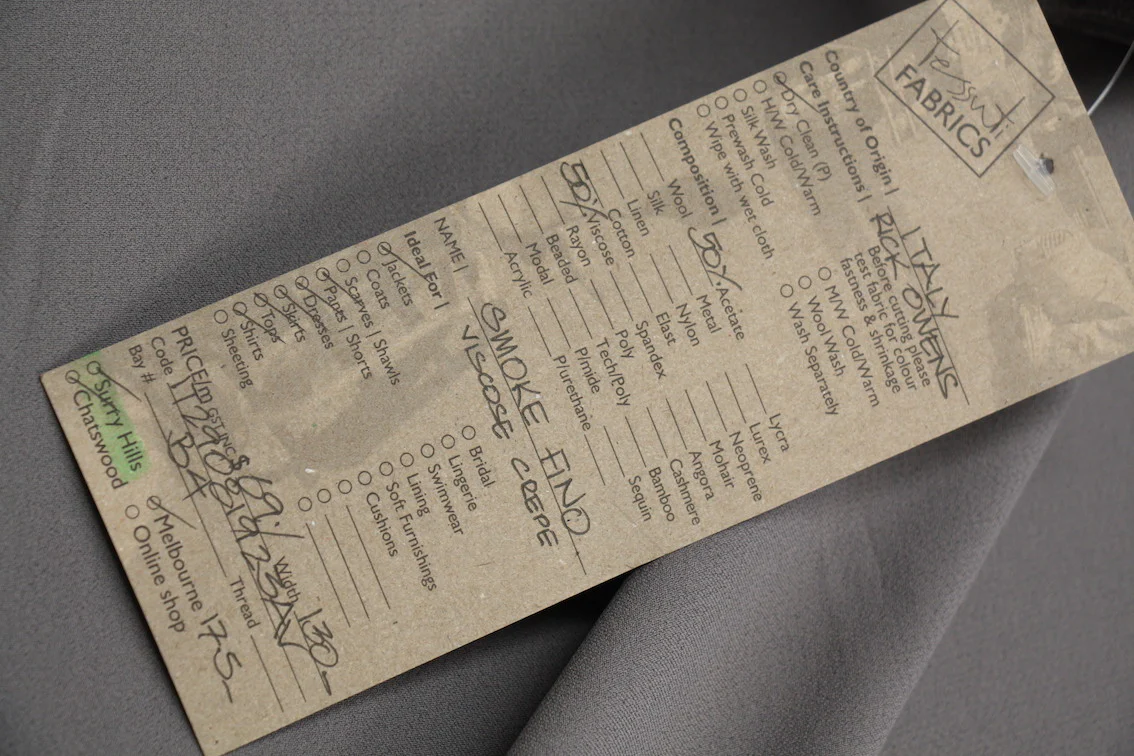 tessuti
FABRICS
Country of Origin | ITALY
RICK OWENS
Care Instructions | Before cutting please
test fabric for colour
fastness & shrinkage
Dry Clean (P)
H/W Cold/Warm
M/W Cold/Warm
Silk Wash
Wool Wash
Prewash Cold
Wash Separately
Wipe with wet cloth
Composition | 50% Acetate
Lycra
Wool
Metal
Lurex
Silk
Nylon
Neoprene
Linen
Elast
Mohair
Cotton
Spandex
Angora
50% Viscose
Poly
Cashmere
Rayon
Tech/Poly
Bamboo
Beaded
P/mide
Sequin
Modal
P/urethane
Acrylic
NAME | SMOKE FINO
VISCOSE CREPE
Ideal For |
Jackets
Bridal
Coats
Lingerie
Scarves | Shawls
Swimwear
Pants | Shorts
Lining
Dresses
Soft Furnishings
Skirts
Cushions
Tops
Shirts
Sheeting
PRICE/m GST INC $ 69./ Width 130-
Code
Bay # BA Thread
Surry Hills
Melbourne 17.5-
Chatswood
Online shop